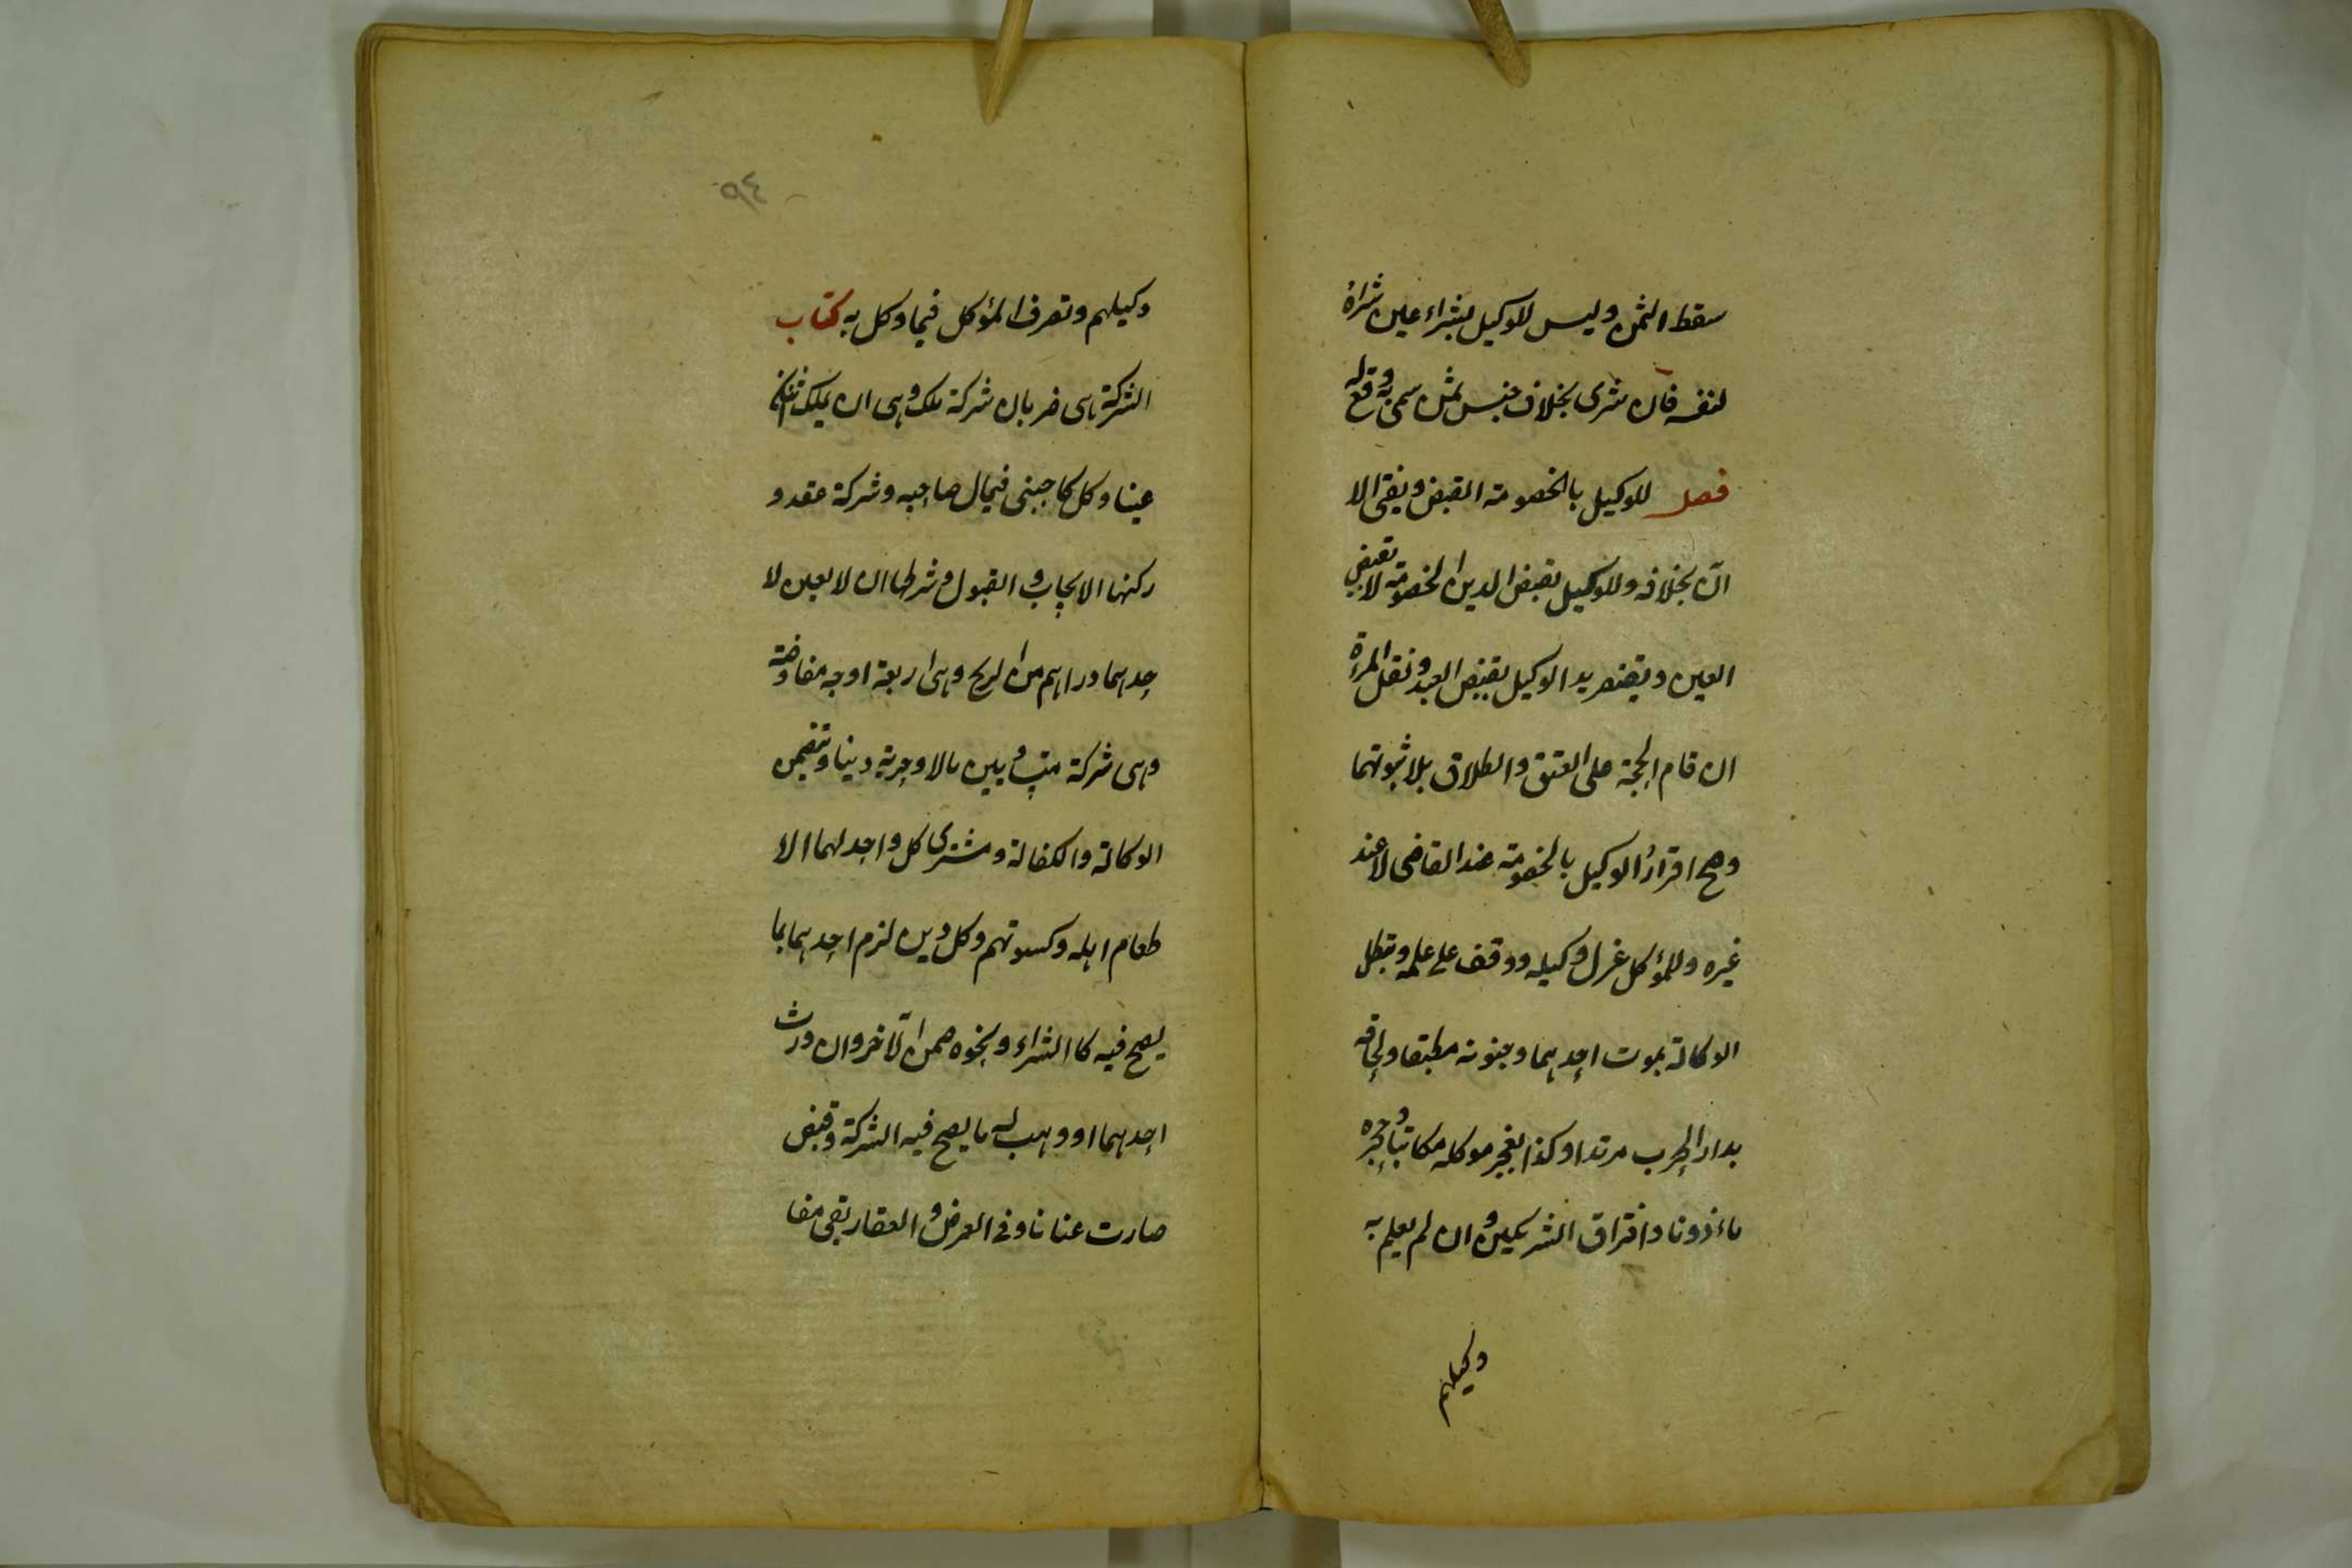 سقط الثمن وليس للوكيل بشراء عين شراؤه
لنفسه فان شرى بخلاف جنس ثمن سمى به وقع له
فصل للوكيل بالخصومة القبض ويفتى الا
الآن بخلافه وللوكيل بقبض الدين الخصومة لا بقبض
العين ويقتصر يد الوكيل بقبض العبد ونقل المرءة
ان قام الحجة على العتق والطلاق بلا ثبوتهما
وصح اقرار الوكيل بالخصومة عند القاضى لا عند
غيره وللمؤكل عزل وكيله ووقف على علمه وتبطل
الوكالة بموت احدهما وجنونه مطبقا ولحاقه
بدار الحرب مرتدا وكذا بعجز موكله مكاتبا وحجره
ماءذونا وافتراق الشريكين وان لم يعلم به
وكيلهم
٩٤
وكيلهم وتصرف المؤكل فيما وكل به كتاب
الشركة هى ضربان شركة ملك وهى ان يملك اثنان
عينا وكل كاجنبى فى مال صاحبه وشركة عقد و
ركنها الايجاب والقبول وشرطها ان لا يعين لا
حدهما دراهم من الربح وهى اربعة اوجه مفاوضة
وهى شركة متساويين مالا وحرية ودينا وتتضمن
الوكالة والكفالة ومشترى كل واحد لهما الا
طعام اهله وكسوتهم وكل دين لزم احدهما بما
يصح فيه كالشراء ونحوه ضمن الآخر وان ورث
احدهما او وهب له ما يصح فيه الشركة وقبض
صارت عنانا وفى العرض والعقار بقى مفا